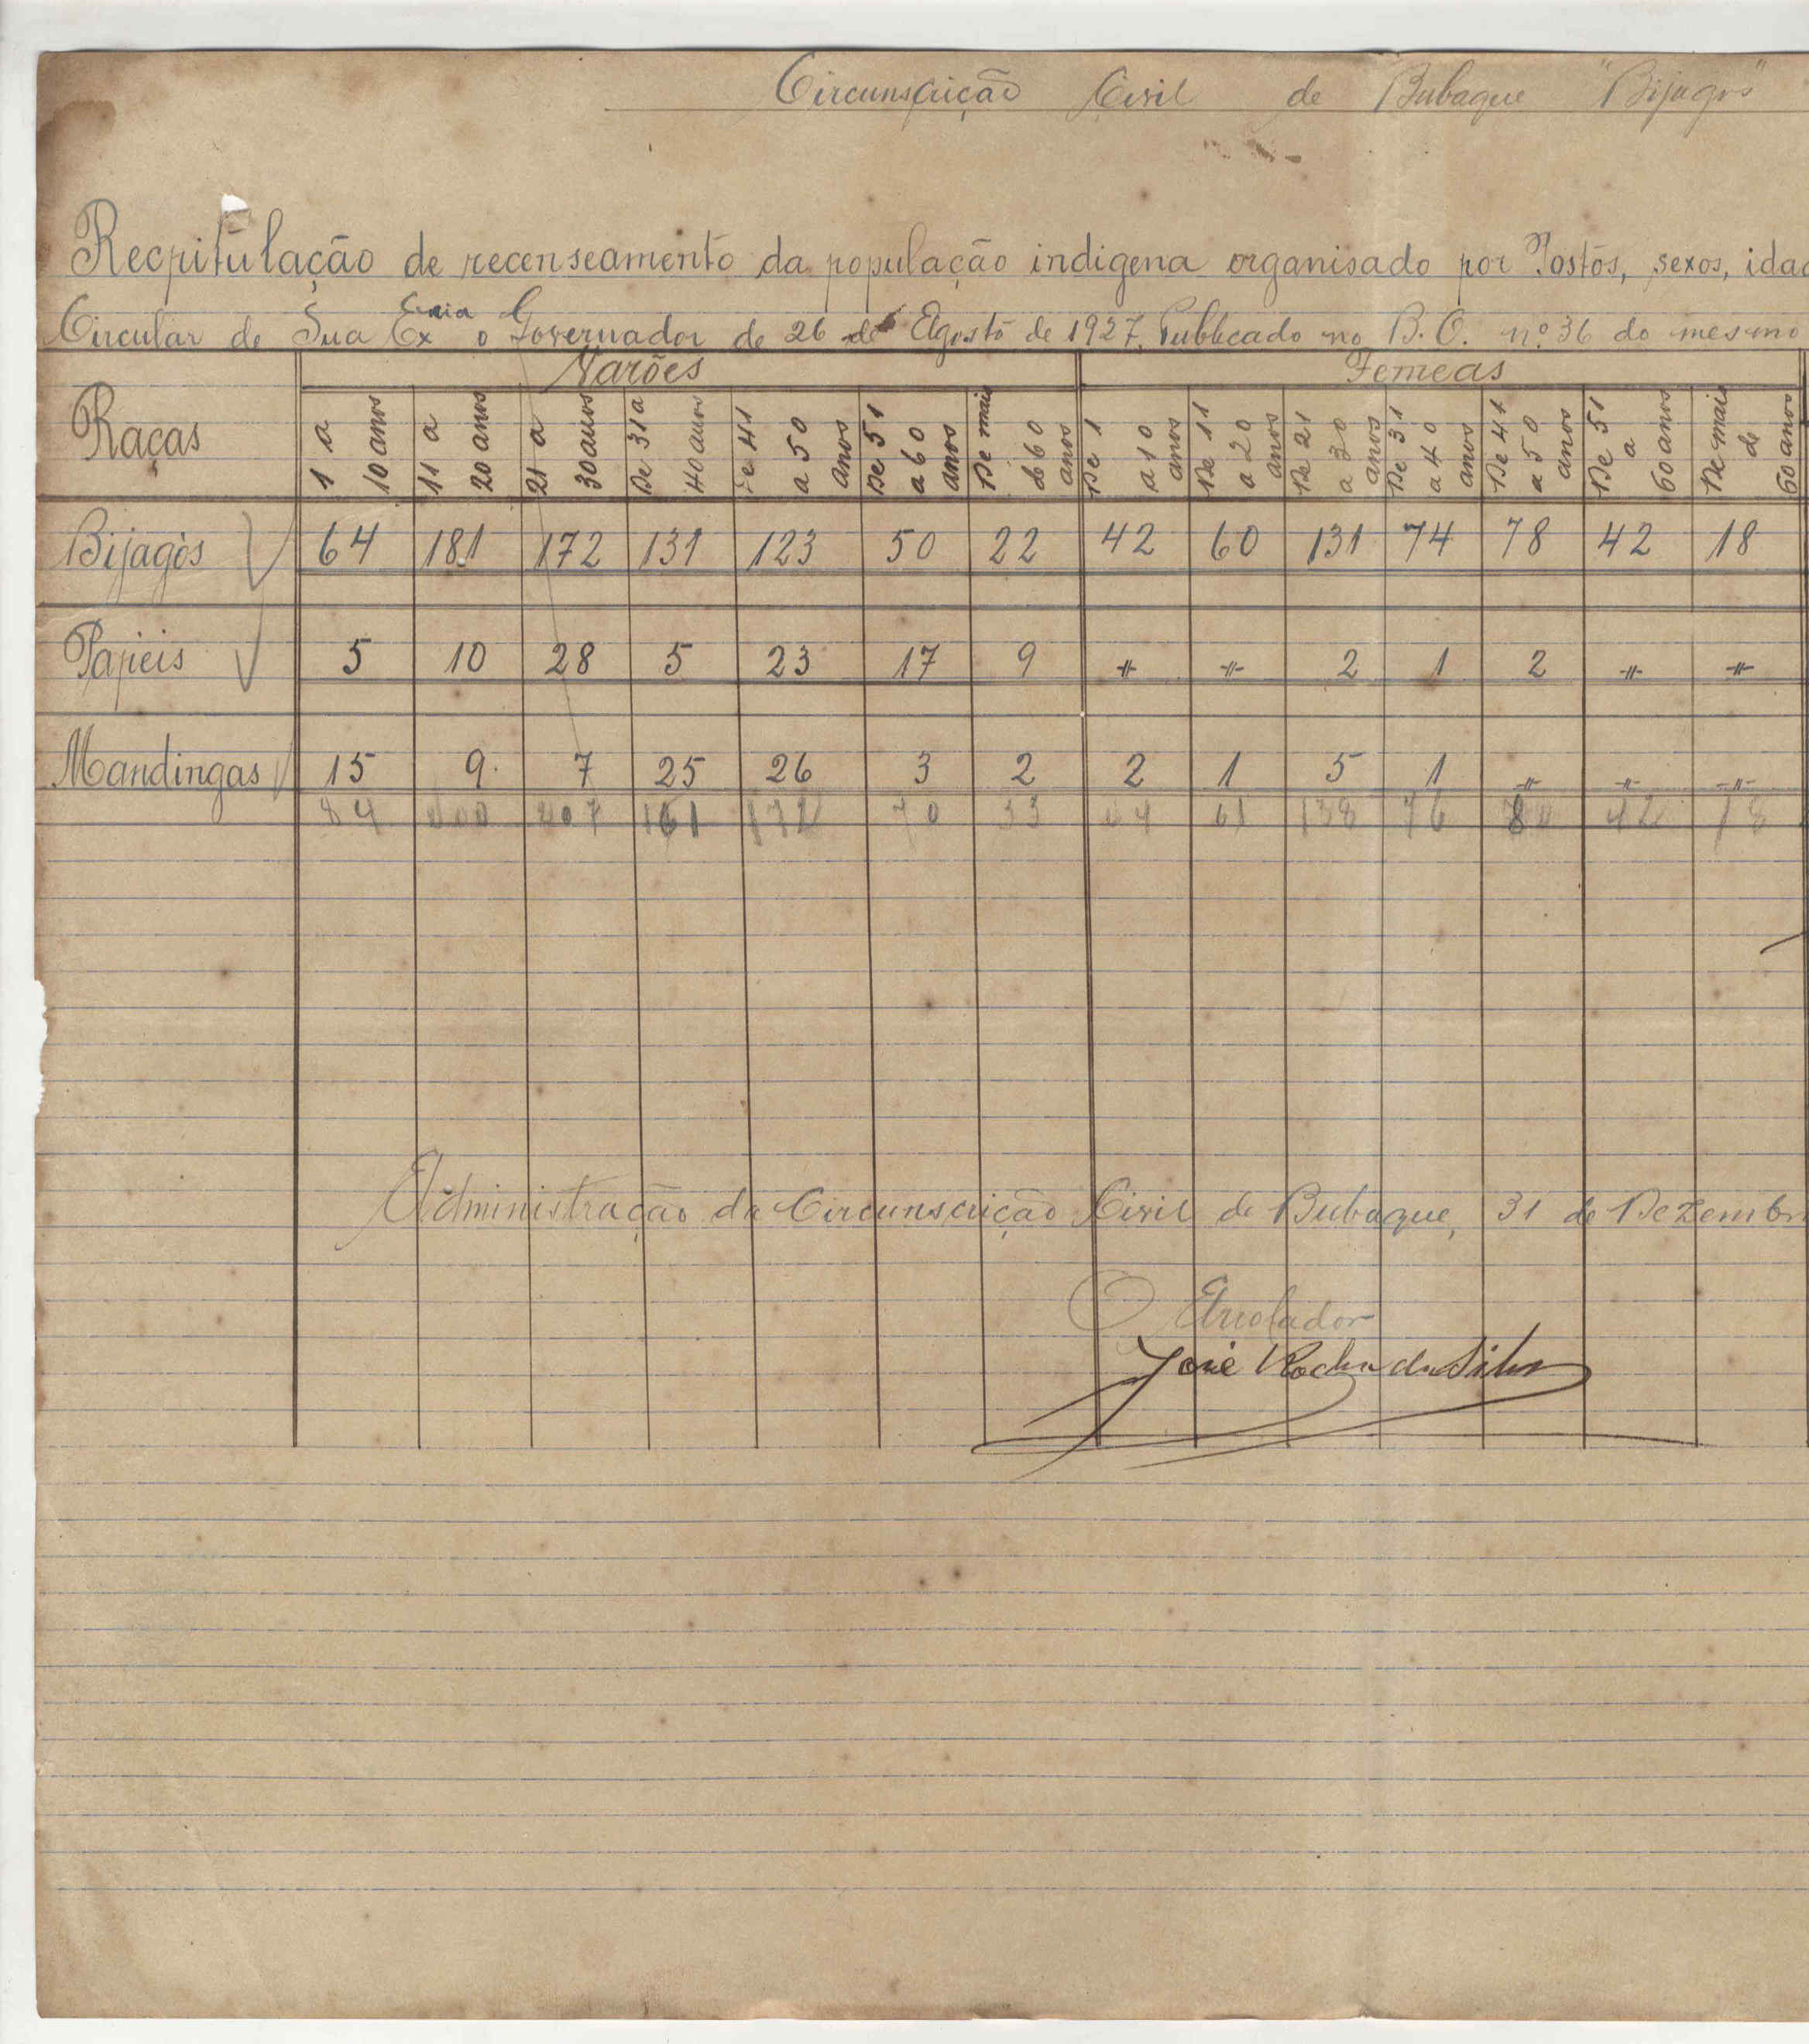 Circunscrição Civil de Bubaque "Bijagós"
Recpitulação de recenseamento da população indigena organisado por Postos, sexos, idad
Circular de Sua Ex Encia o Governador de 26 de Agosto de 1927, Publicado no B.O. nº 36 do mesmo
Varões Femeas
Raças 1 a 10 anos 11 a 20 anos 21 a 30 anos De 31 a 40 anos De 41 a 50 anos De 51 a 60 anos De mais d 60 anos De 1 a 10 anos De 11 a 20 anos De 21 a 30 anos De 31 a 40 anos De 41 a 50 anos De 51 a 60 anos De mais de 60 anos
Bijagós 64 181 172 131 123 50 22 42 60 131 74 78 42 18
Papeis 5 10 28 5 23 17 9 " " 2 1 2 " "
Mandingas 15 9 7 25 26 3 2 2 1 5 1 " " "
84 200 207 161 172 70 33 44 61 138 76 80 42 18
Administração da Circunscrição Civil de Bubaque, 31 de Dezembr
O Arrolador
José Rocha da Silva